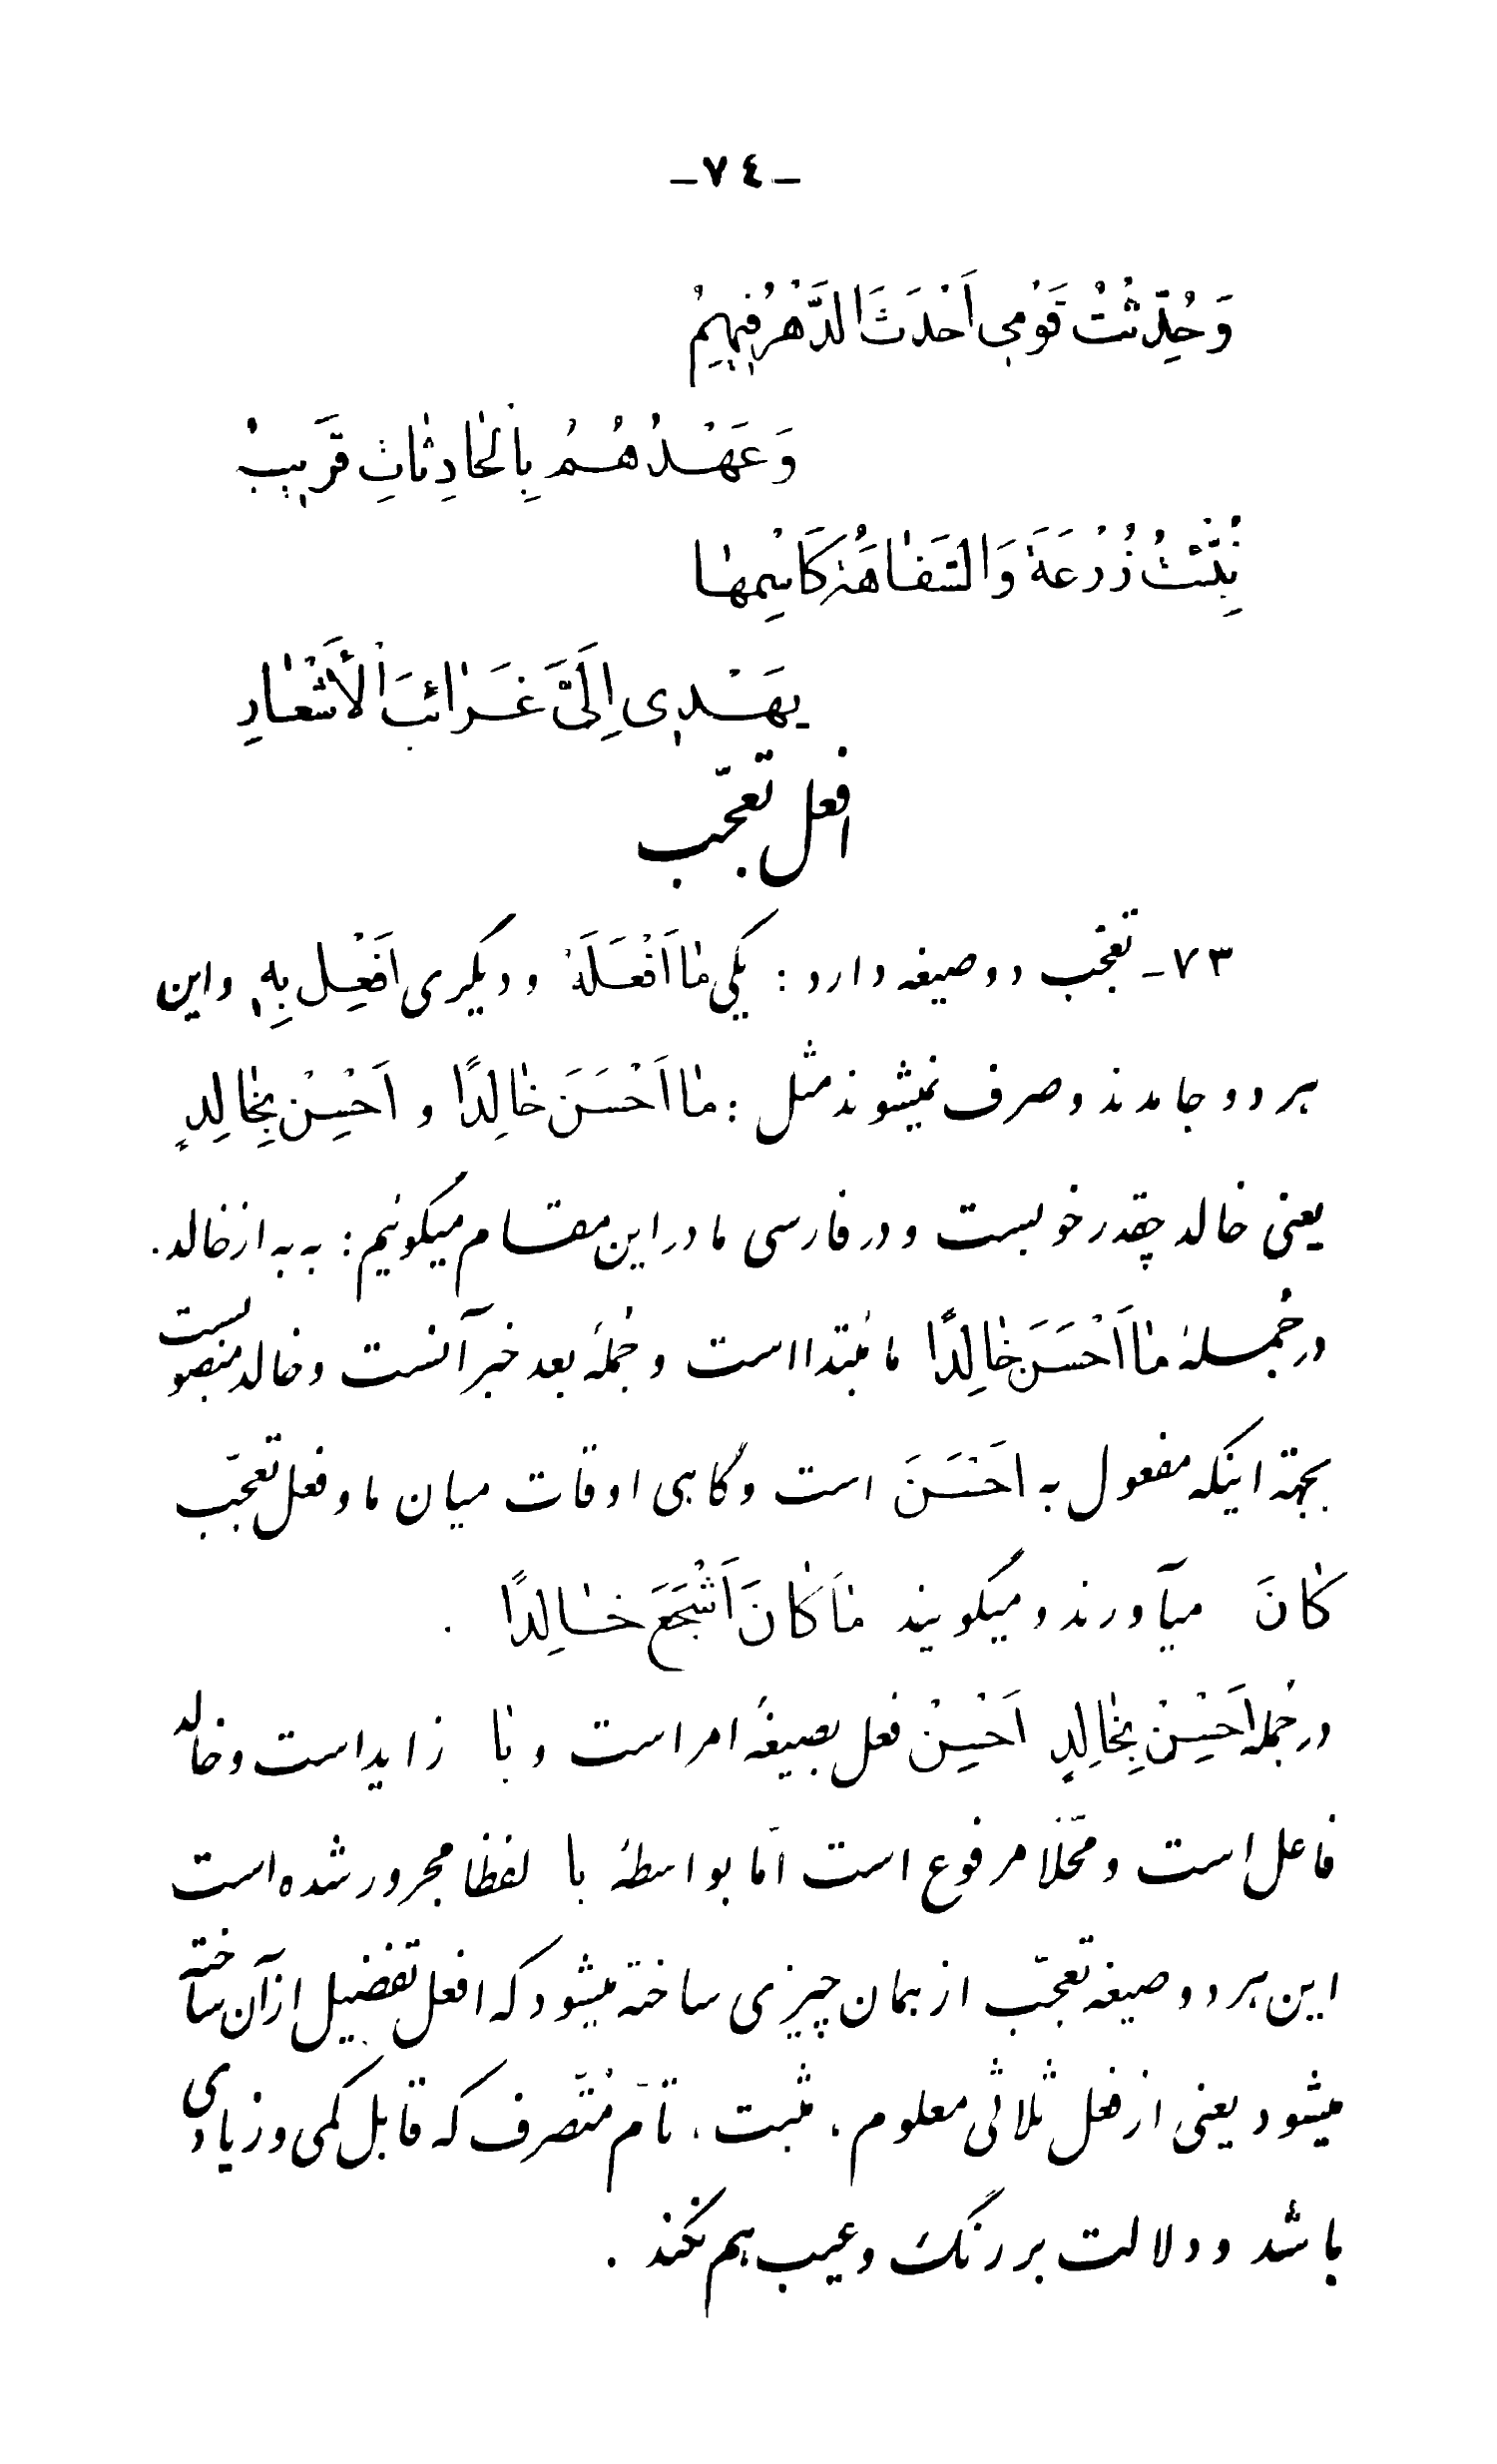 ـ ٧٤ ـ
وَحُدِّثْتُ قَوْمٖي اَحْدَثَ الدَّهْرُ فٖيهِمُ
وَعَهْدُهُمُ بِالْحٰادِثٰاتِ قَرٖيبُ
نُبِّئْتُ زُرْعَةَ وَالسَّفٰاهَةُ كَاسْمِهٰا
يَهْدٖي اِلَىَّ غَرٰائِبَ الْأَشْعٰارِ
افعل تعجّب
٧٣ـ تعجّب دو صیغه دارد : یکی مٰا اَفْعَلَهُ و دیگری اَفْعِل بِهٖ و این
هر دو جامدند و صرف نمیشوند مثل : مٰا اَحْسَنَ خٰالِدًا و اَحْسِنْ بِخٰالِدٍ
یعنی خالد چقدر خوبست و در فارسی ما در این مقام میگوئیم : به به از خالد .
در جُملهٔ مٰا اَحْسَنَ خٰالِدًا ما مُبتدا است و جُملهٔ بعد خبر آنست و خالد منصوبست
بجهة اینکه مفعول به اَحْسَنَ است و گاهی اوقات میان ما و فعل تعجّب
کٰانَ میآورند و میگویند مٰا کٰانَ اَشْجَعَ خٰالِدًا .
در جُمله اَحْسِنْ بِخٰالِدٍ اَحْسِنْ فعل بصیغهٔ امر است و بٰا زاید است و خالد
فاعل است و محّلا مرفوع است امّا بواسطهٔ با لفظا مجرور شده است
این هر دو صیغه تعجّب از همان چیزی ساخته میشود که افعل تفضیل از آن ساخته
میشود یعنی از فعل ثلاثی معلوم ، مثبت ، تامّ مُتّصرف که قابل کمی و زیادی
باشد و دلالت بر رنگ و عیب هم نکند .